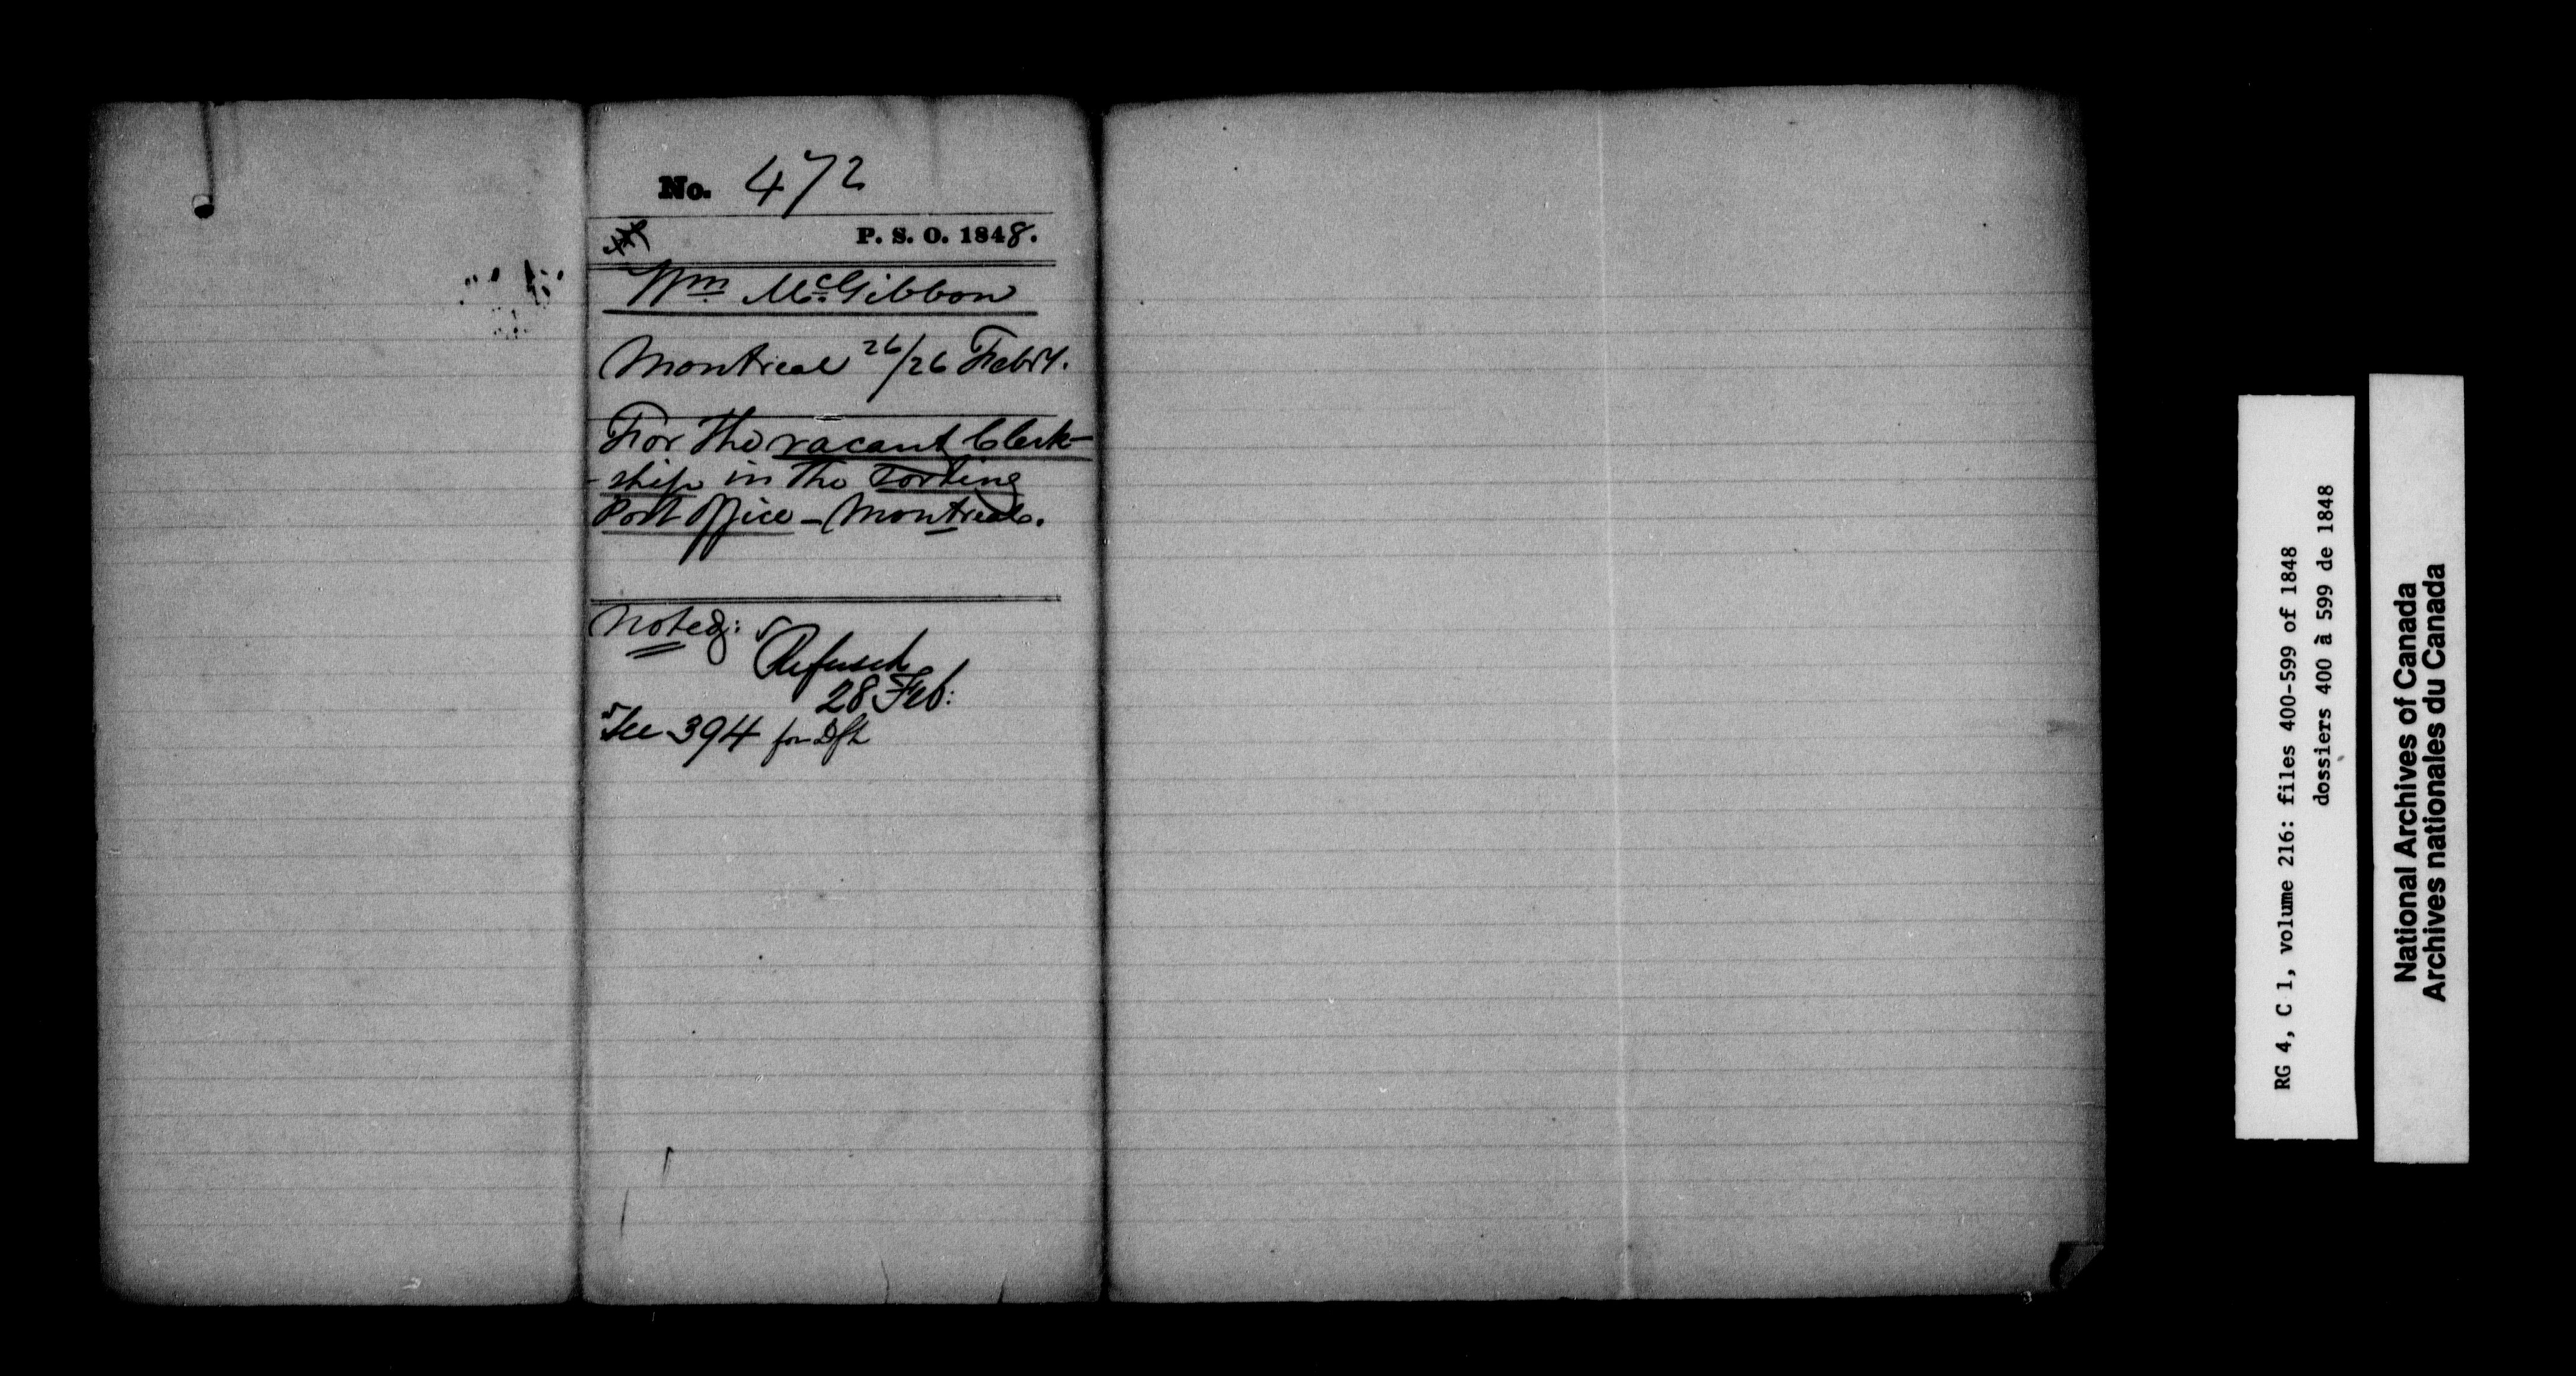 No. 472
P. S. O. 1848.
Wm McGibbon
Montreal 26/26 Febry.
For the vacant Clerk-
-ship in the Sorting
Post Office - Montreal.
Noted:
Refused
28 Feb:
See 394 for Dft
RG 4, C 1, volume 216: files 400-599 of 1848
dossiers 400 à 599 de 1848
National Archives of Canada
Archives nationales du Canada